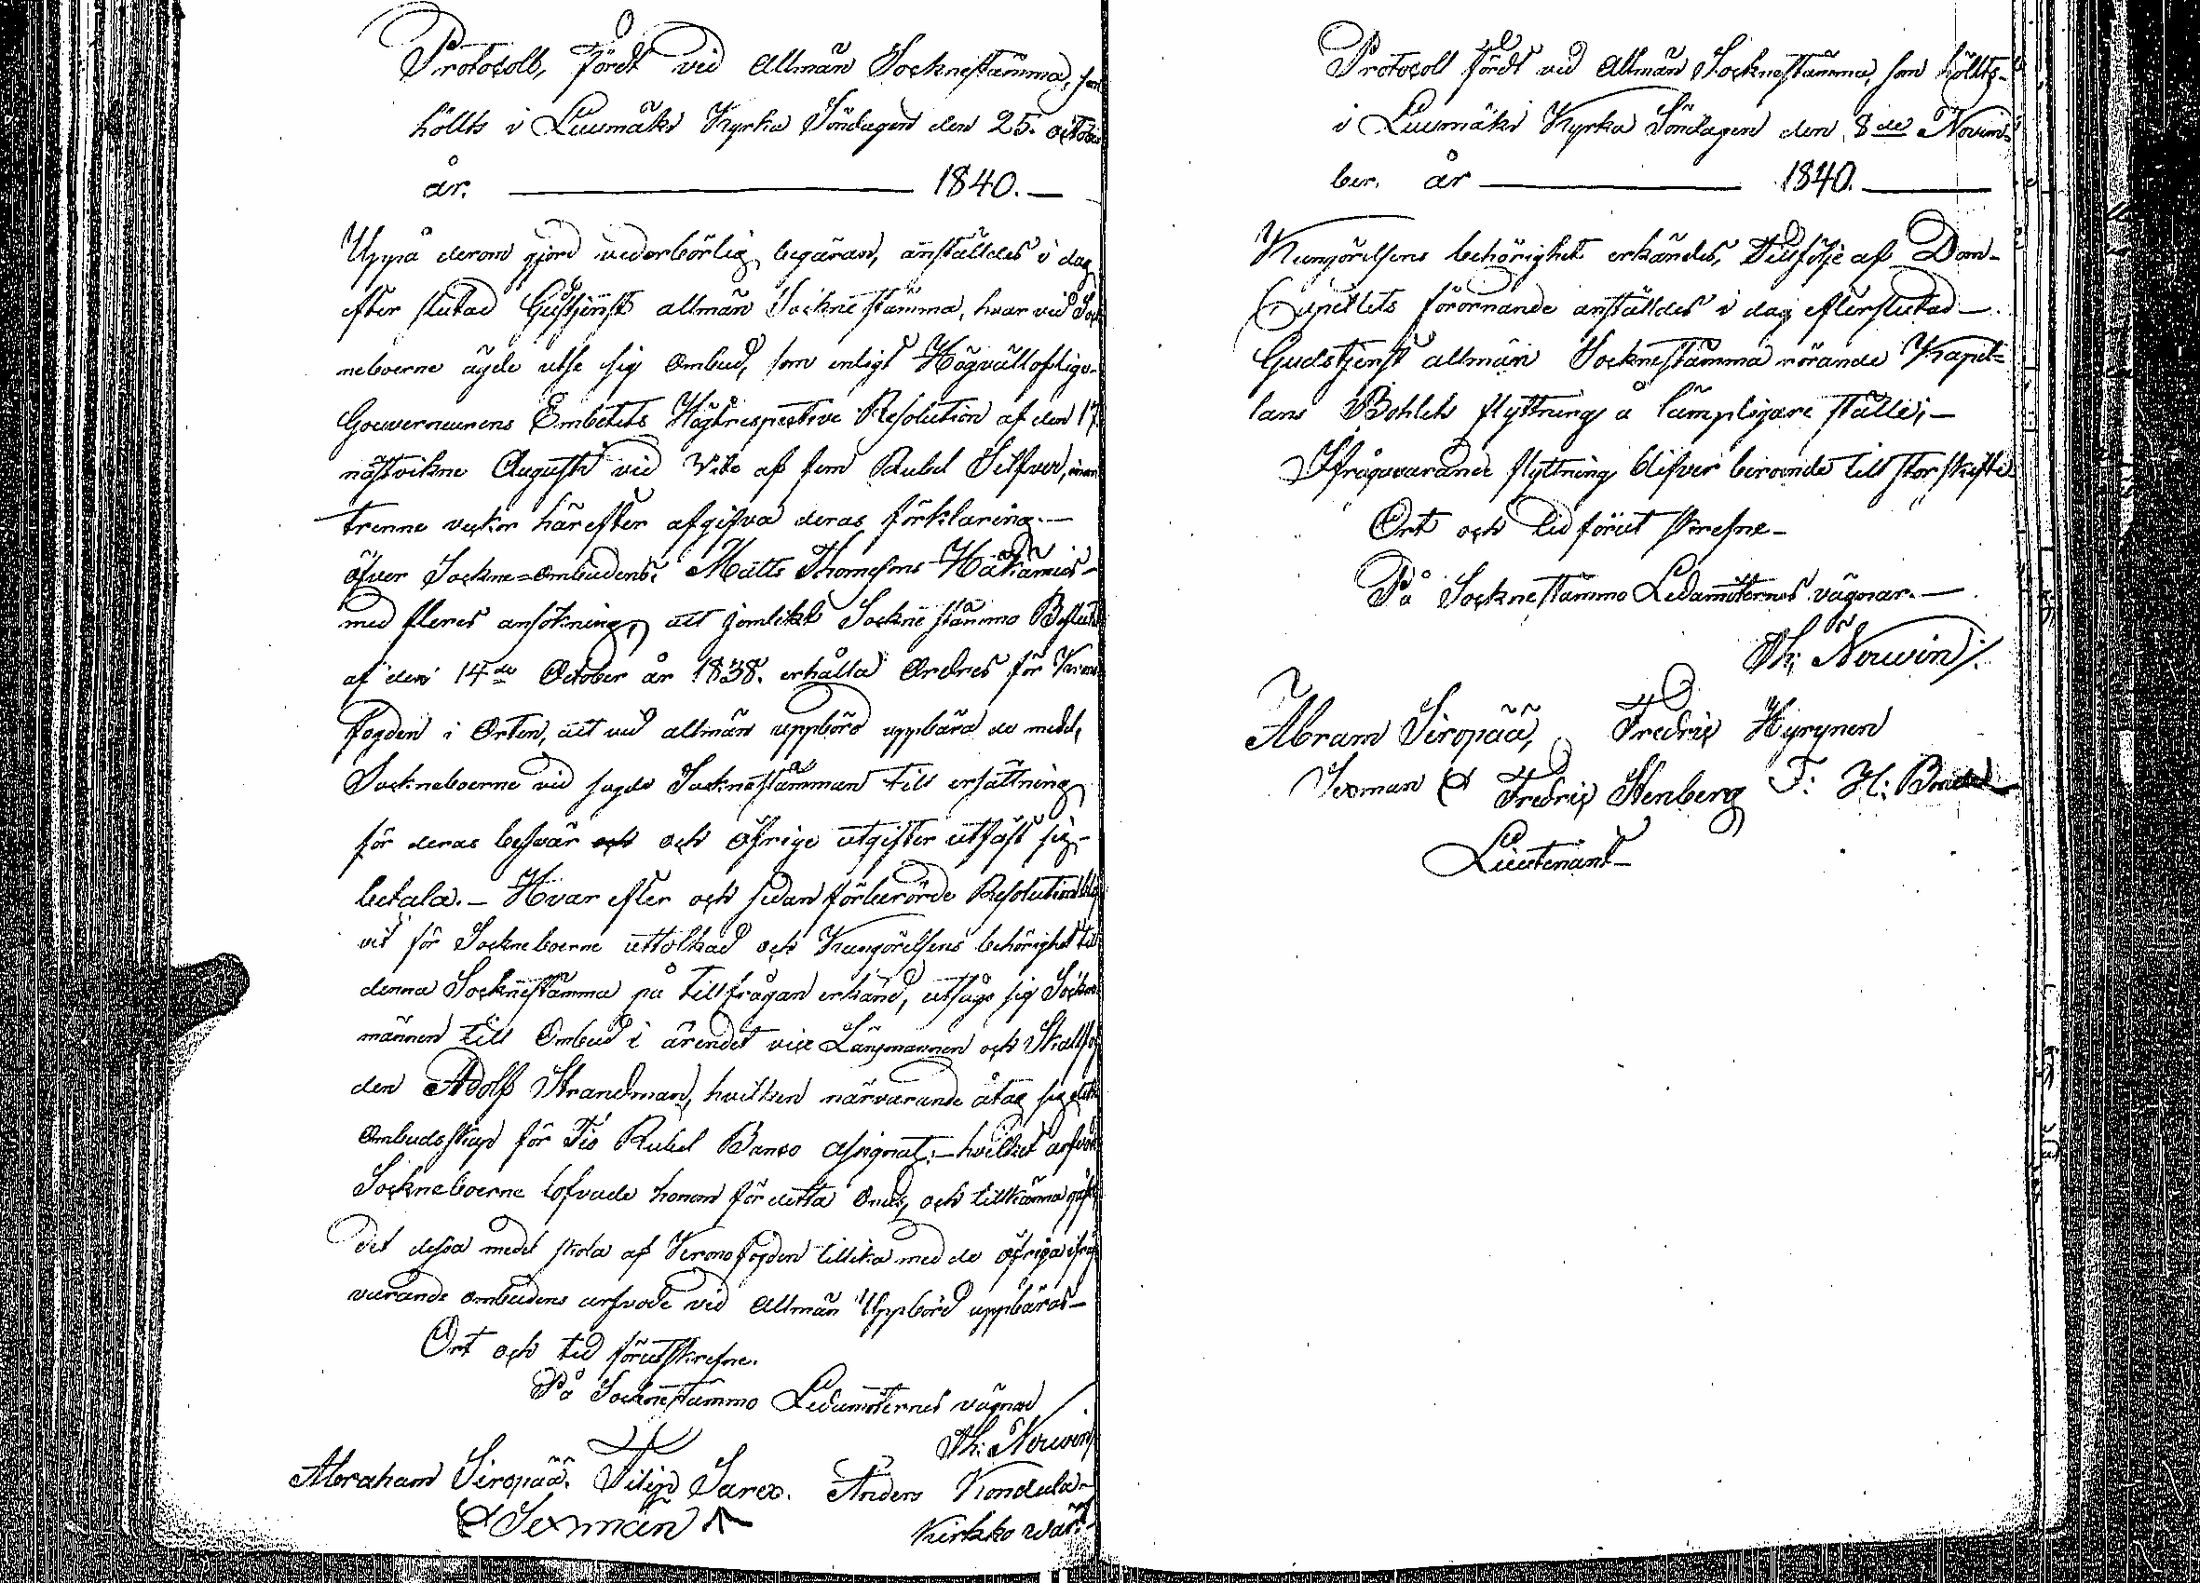 Protocoll, fördt vid Allmän Socknestämma, som
hölts i Luumäki Kyrka Söndagen den 25. October
år. 1840.
Uppå derom gjord vederbörlig begäran, anställdes i dag
efter slutad Gustjenst allmän Socknestämma, hvar vid Sock-
neboerne ägde utse sig Ombud, som enligt Högvälloflige
Gouverneurens Embetets Högtrespective Resolution af den 17
nästvikne Augusti vid Vite af fem Rubel Silfver, inom
trenne veckor härefter afgifva deras förklaring
öfver Sockne-Ombudens: Matts Thomesons
med fleres ansökning, att jemlikt Sockne stämmo Beslut
af den 14de October år 1838. erhålla Ordres för Krono
fogden i Orten, att vid allmän uppbörd uppbära de medel,
Sockneboerne vid sagde Socknestämman till ersättning
för deras besvär och och öfrige utgifter utfäst sig
betala. — Hvar efter och sedan förberörde Resolution blif
vit för Sockneboerne uttolkad och Kungörelsens behörighet till
denna Socknestämma på tillfrågan erkänd, utsågo sig Sockne
männen till Ombud i ärendet vice Länsmannen och Skallfog
den Adolf Strandman, hvilken närvarande åtog sig detta
Ombudsskap för Tio Rubel Banco Assignat; — hvilket arfvode
Sockneboerne lofvade honom för detta Onus, och tillkänna gafs
det dessa medel skola af Kronofogden tillika med de öfriga ifråga
varande ombudens arfvode vid Allmän Uppbörd uppbäras —
Ort och tid förutskrefne.
På Socknestämmo Ledamöternes vägnar
Th: Nowin
Abraham Siropää. Filip Sarex. Anders Kondula
Sexman Kirkko wärd
Protocoll fördt vid Allmän Socknestämma, som hölts
i Luumäki Kyrka Söndagen den 8de Novem-
ber. år 1840.
Kungörelsens behörighet erkändes, Tillfölje af Dom-
Capitlets förornande anställdes i dag efterslutad
Gudstjenst allmän Socknestämma rörande Kapel-
lans Bohlets flyttning å lämpligare ställe; —
Ifrågavarande flyttning blifver beroende till storskifte
Ort och tid förut skrefne —
På Socknestämmo Ledamöternes vägnar. —
Th: Nowin
Abram Siropää, Fredric Hyrynen
Sexman Fredric Stenberg F: H:
Lieutenant